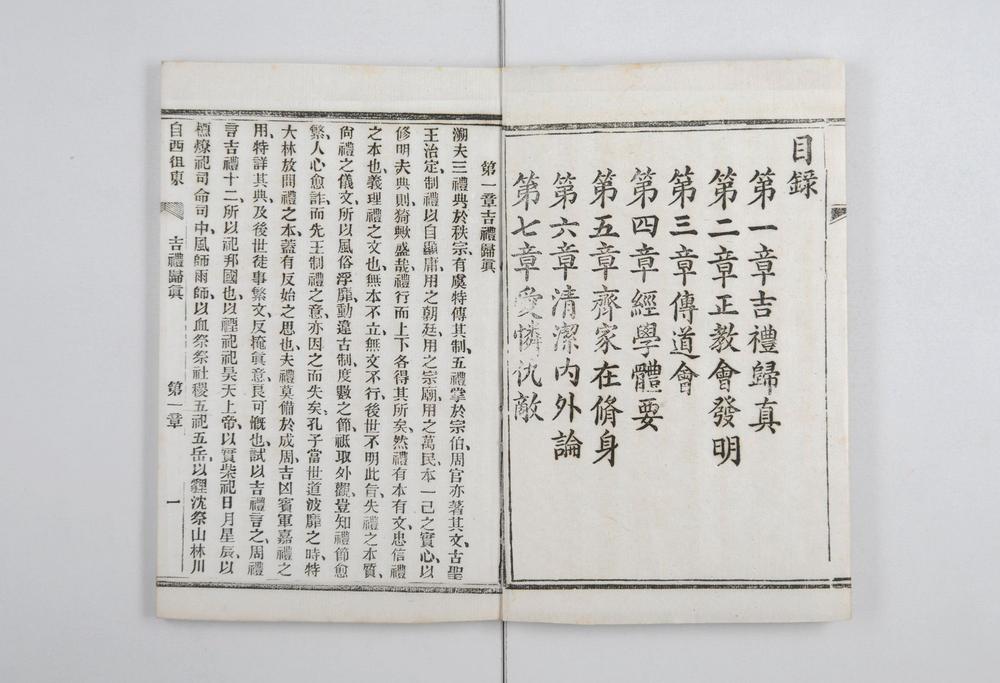 目錄
第一章吉禮歸真
第二章正教會發明
第三章傳道會
第四章經學體要
第五章齊家在脩身
第六章清潔内外論
第七章愛憐仇敵
第一章吉禮歸眞
溯夫三禮典於秩宗、有虞特傳其制、五禮掌於宗伯、周官亦著其文、古聖
王治定、制禮以自顯庸、用之朝廷、用之宗廟、用之萬民、本一己之實心、以
修明夫典則、猗歟盛哉、禮行而上下各得其所矣、然禮有本有文、忠信禮
之本也、義理禮之文也、無本不立、無文不行、後世不明此旨、失禮之本質、
尚禮之儀文、所以風俗浮靡、動違古制、度數之節、祇取外觀、豈知禮節愈
繁、人心愈詐、而先王制禮之意、亦因之而失矣、孔子當世道波靡之時、特
大林放問禮之本、蓋有反始之思也、夫禮莫備於成周、吉凶賓軍嘉禮之
用、特詳其典、及後世徒事繁文、反掩眞意、良可慨也、試以吉禮言之、周禮
言吉禮十二、所以祀邦國也、以禋祀祀昊天上帝、以實柴祀日月星辰、以
槱燎祀司命司中、風師雨師、以血祭祭社稷五祀五岳、以貍沈祭山林川
自西徂東 吉禮歸眞 第一章 一